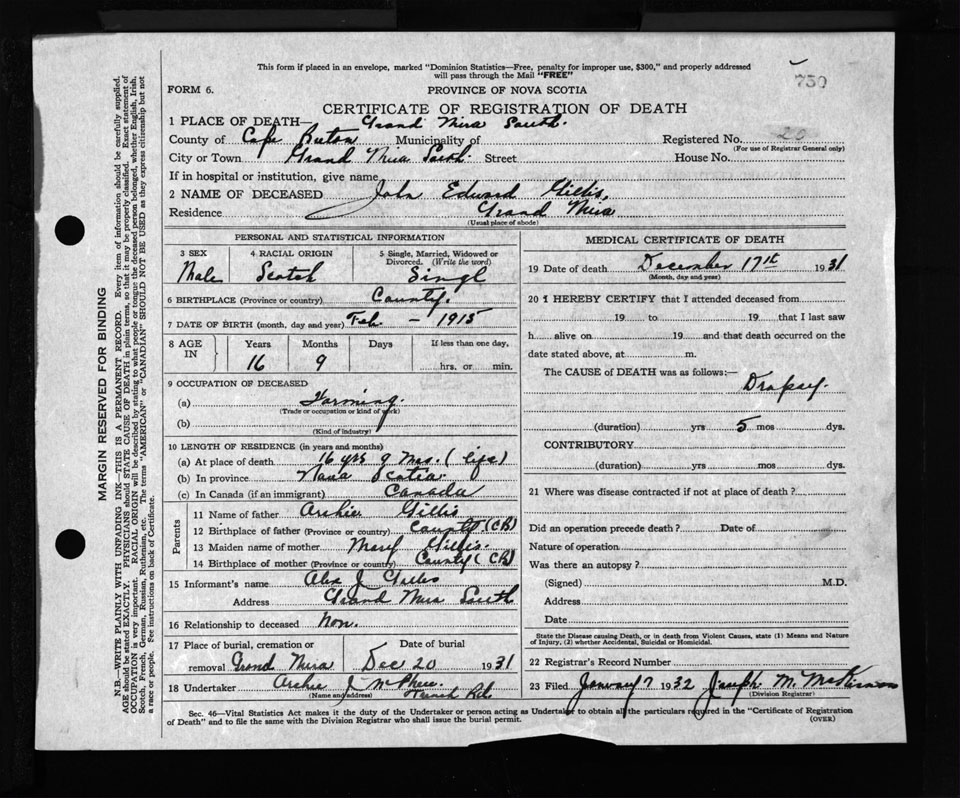 This form if placed in an envelope, marked "Dominion Statistics—Free, penalty for improper use, $300," and properly addressed
will pass through the Mail "FREE"
750
FORM 6.
PROVINCE OF NOVA SCOTIA
CERTIFICATE OF REGISTRATION OF DEATH
1 PLACE OF DEATH— Grand Mira South.
County of Cape Breton Municipality of Registered No. 20
(For use of Registrar General only)
City or Town Grand Mira South. Street House No.
If in hospital or institution, give name
2 NAME OF DECEASED John Edward Gillis,
Residence Grand Mira
(Usual place of abode)
PERSONAL AND STATISTICAL INFORMATION
3 SEX 4 RACIAL ORIGIN 5 Single, Married, Widowed or
Divorced. (Write the word)
Male Scotch Singl
6 BIRTHPLACE (Province or country) County.
7 DATE OF BIRTH (month, day and year) Feb – 1915
8 AGE IN Years Months Days If less than one day,
16 9 hrs. or min.
9 OCCUPATION OF DECEASED
(a) Farming.
(Trade or occupation or kind of work)
(b)
(Kind of industry)
10 LENGTH OF RESIDENCE (in years and months)
(a) At place of death 16 yrs 9 Mos. (life)
(b) In province Nova Scotia
(c) In Canada (if an immigrant) Canada
Parents
11 Name of father Archie Gillis
12 Birthplace of father (Province or country) County (CB)
13 Maiden name of mother Mary Gillis.
14 Birthplace of mother (Province or country) County (CB)
15 Informant's name Alex J Gillis
Address Grand Mira South
16 Relationship to deceased Non.
17 Place of burial, cremation or Date of burial
removal Grond Mira Dec 20 1931
18 Undertaker Archie J
and address French Rd.
MEDICAL CERTIFICATE OF DEATH
19 Date of death December 17st 1931
(Month, day and year)
20 I HEREBY CERTIFY that I attended deceased from
19 to 19 that I last saw
h alive on 19 and that death occurred on the
date stated above, at m.
The CAUSE of DEATH was as follows:—
Dropsy.
(duration) yrs 5 mos dys.
CONTRIBUTORY
(duration) yrs mos dys.
21 Where was disease contracted if not at place of death?
Did an operation precede death? Date of
Nature of operation
Was there an autopsy?
(Signed) M.D.
Address
Date
State the Disease causing Death, or in death from Violent Causes, state (1) Means and Nature
of Injury, (2) whether Accidental, Suicidal or Homicidal.
22 Registrar's Record Number
23 Filed January 7 1932 Joseph M.
(Division Registrar)
Sec. 46—Vital Statistics Act makes it the duty of the Undertaker or person acting as Undertaker to obtain all the particulars required in the "Certificate of Registration
of Death" and to file the same with the Division Registrar who shall issue the burial permit.
(OVER)
MARGIN RESERVED FOR BINDING
N.B.—WRITE PLAINLY WITH UNFADING INK—THIS IS A PERMANENT RECORD. Every item of information should be carefully supplied.
AGE should be stated EXACTLY. PHYSICIANS should STATE CAUSE OF DEATH in plain terms, so that it may be properly classified. Exact statement of
OCCUPATION is very important. RACIAL ORIGIN will be described by stating to what people or tongue the deceased person belonged, whether English, Irish,
Scotch, French, German, Russian, Ruthenian, etc. The terms "AMERICAN" or "CANADIAN" SHOULD NOT BE USED as they express citizenship but not
a race or people. See instructions on back of Certificate.